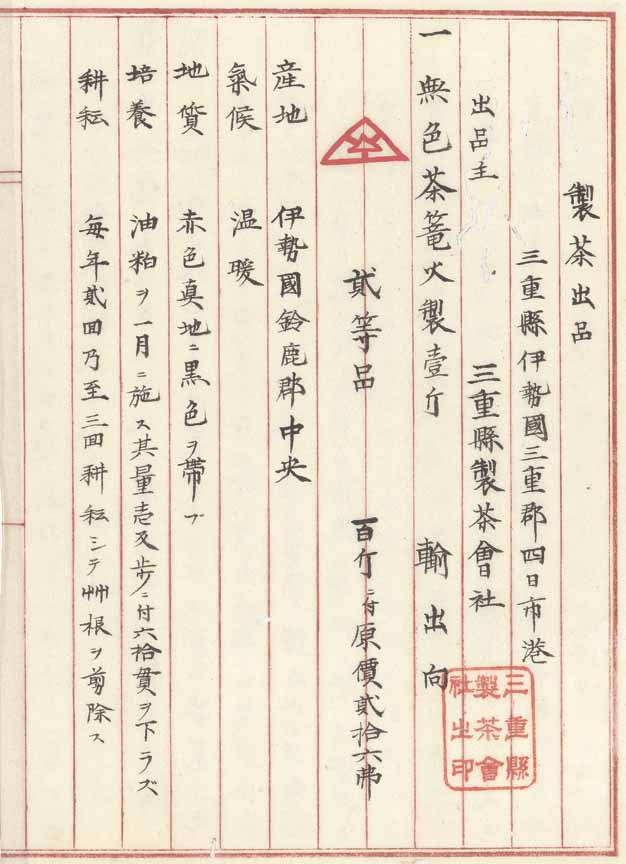 製茶出品
三重縣伊勢國三重郡四日市港
出品主 三重縣製茶會社
一無色茶篭火製壹斤 輸出向
貳等品 百斤ニ付原價貳拾六弗
産地 伊勢國鈴鹿郡中央
氣候 温暖
地質 赤色真地ニ黒色ヲ帶ブ
培養 油粕ヲ一月ニ施ス其量壱反歩ニ付六拾貫ヲ下ラズ
耕耘 毎年貳回乃至三回耕耘シテ艸根ヲ剪除ス
三重縣
製茶會
社出印